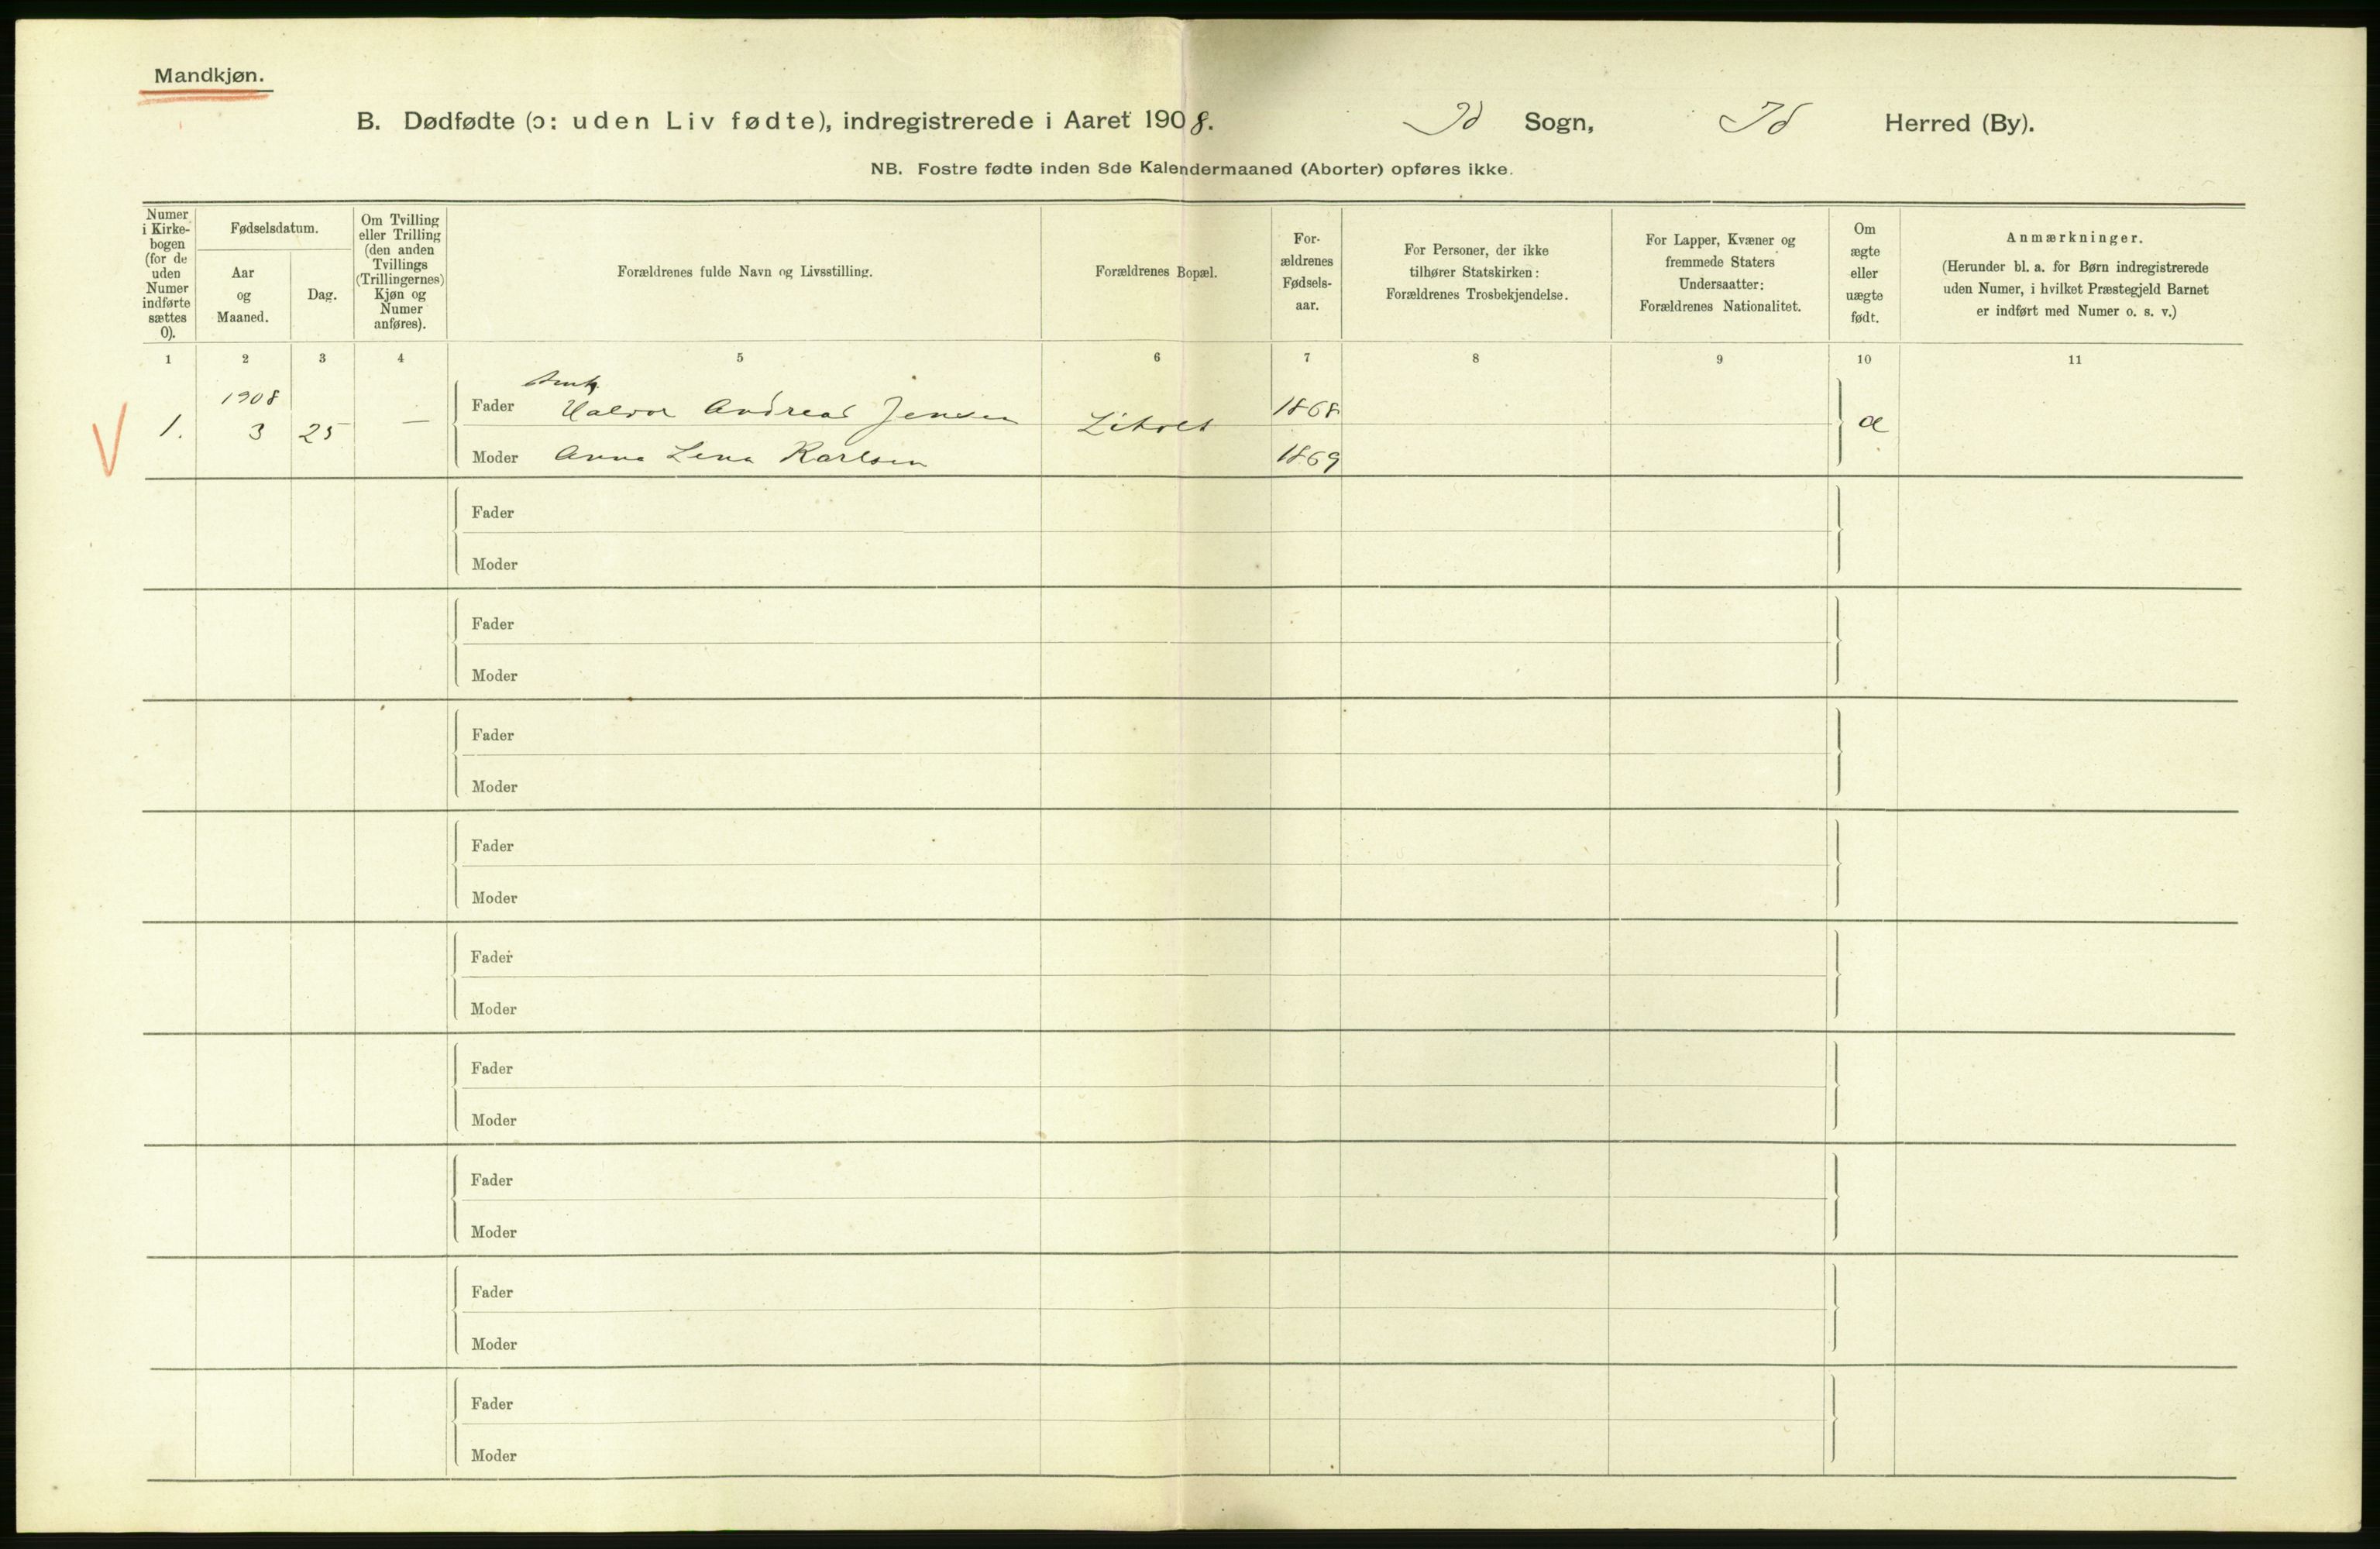 Mandkjøn.
B. Dødfødte (ɔ: uden Liv fødte), indregistrerede i Aaret 1908. Id Sogn, Id Herred (By).
NB. Fostre fødte inden 8de Kalendermaaned (Aborter) opføres ikke.
Numer
i Kirke-
bogen
(for de
uden
Numer
indførte
sættes
0).
Fødselsdatum.
Aar
og
Maaned.
Dag.
Om Tvilling
eller Trilling
(den anden
Tvillings
(Trillingernes)
Kjøn og
Numer
anføres).
Forældrenes fulde Navn og Livsstilling.
Forældrenes Bopæl.
For-
ældrenes
Fødsels-
aar.
For Personer, der ikke
tilhører Statskirken:
Forældrenes Trosbekjendelse.
For Lapper, Kvæner og
fremmede Staters
Undersaatter:
Forældrenes Nationalitet.
Om
ægte
eller
uægte
født.
Anmærkninger.
(Herunder bl. a. for Børn indregistrerede
uden Numer, i hvilket Præstegjeld Barnet
er indført med Numer o. s. v.)
1 2 3 4 5 6 7 8 9 10 11
1908
1. 3 25 —
Fader Halvor Andreas Jensen 1868
Moder Anna Lena Karlsen 1869
æ
Fader
Moder
Fader
Moder
Fader
Moder
Fader
Moder
Fader
Moder
Fader
Moder
Fader
Moder
Fader
Moder
Fader
Moder